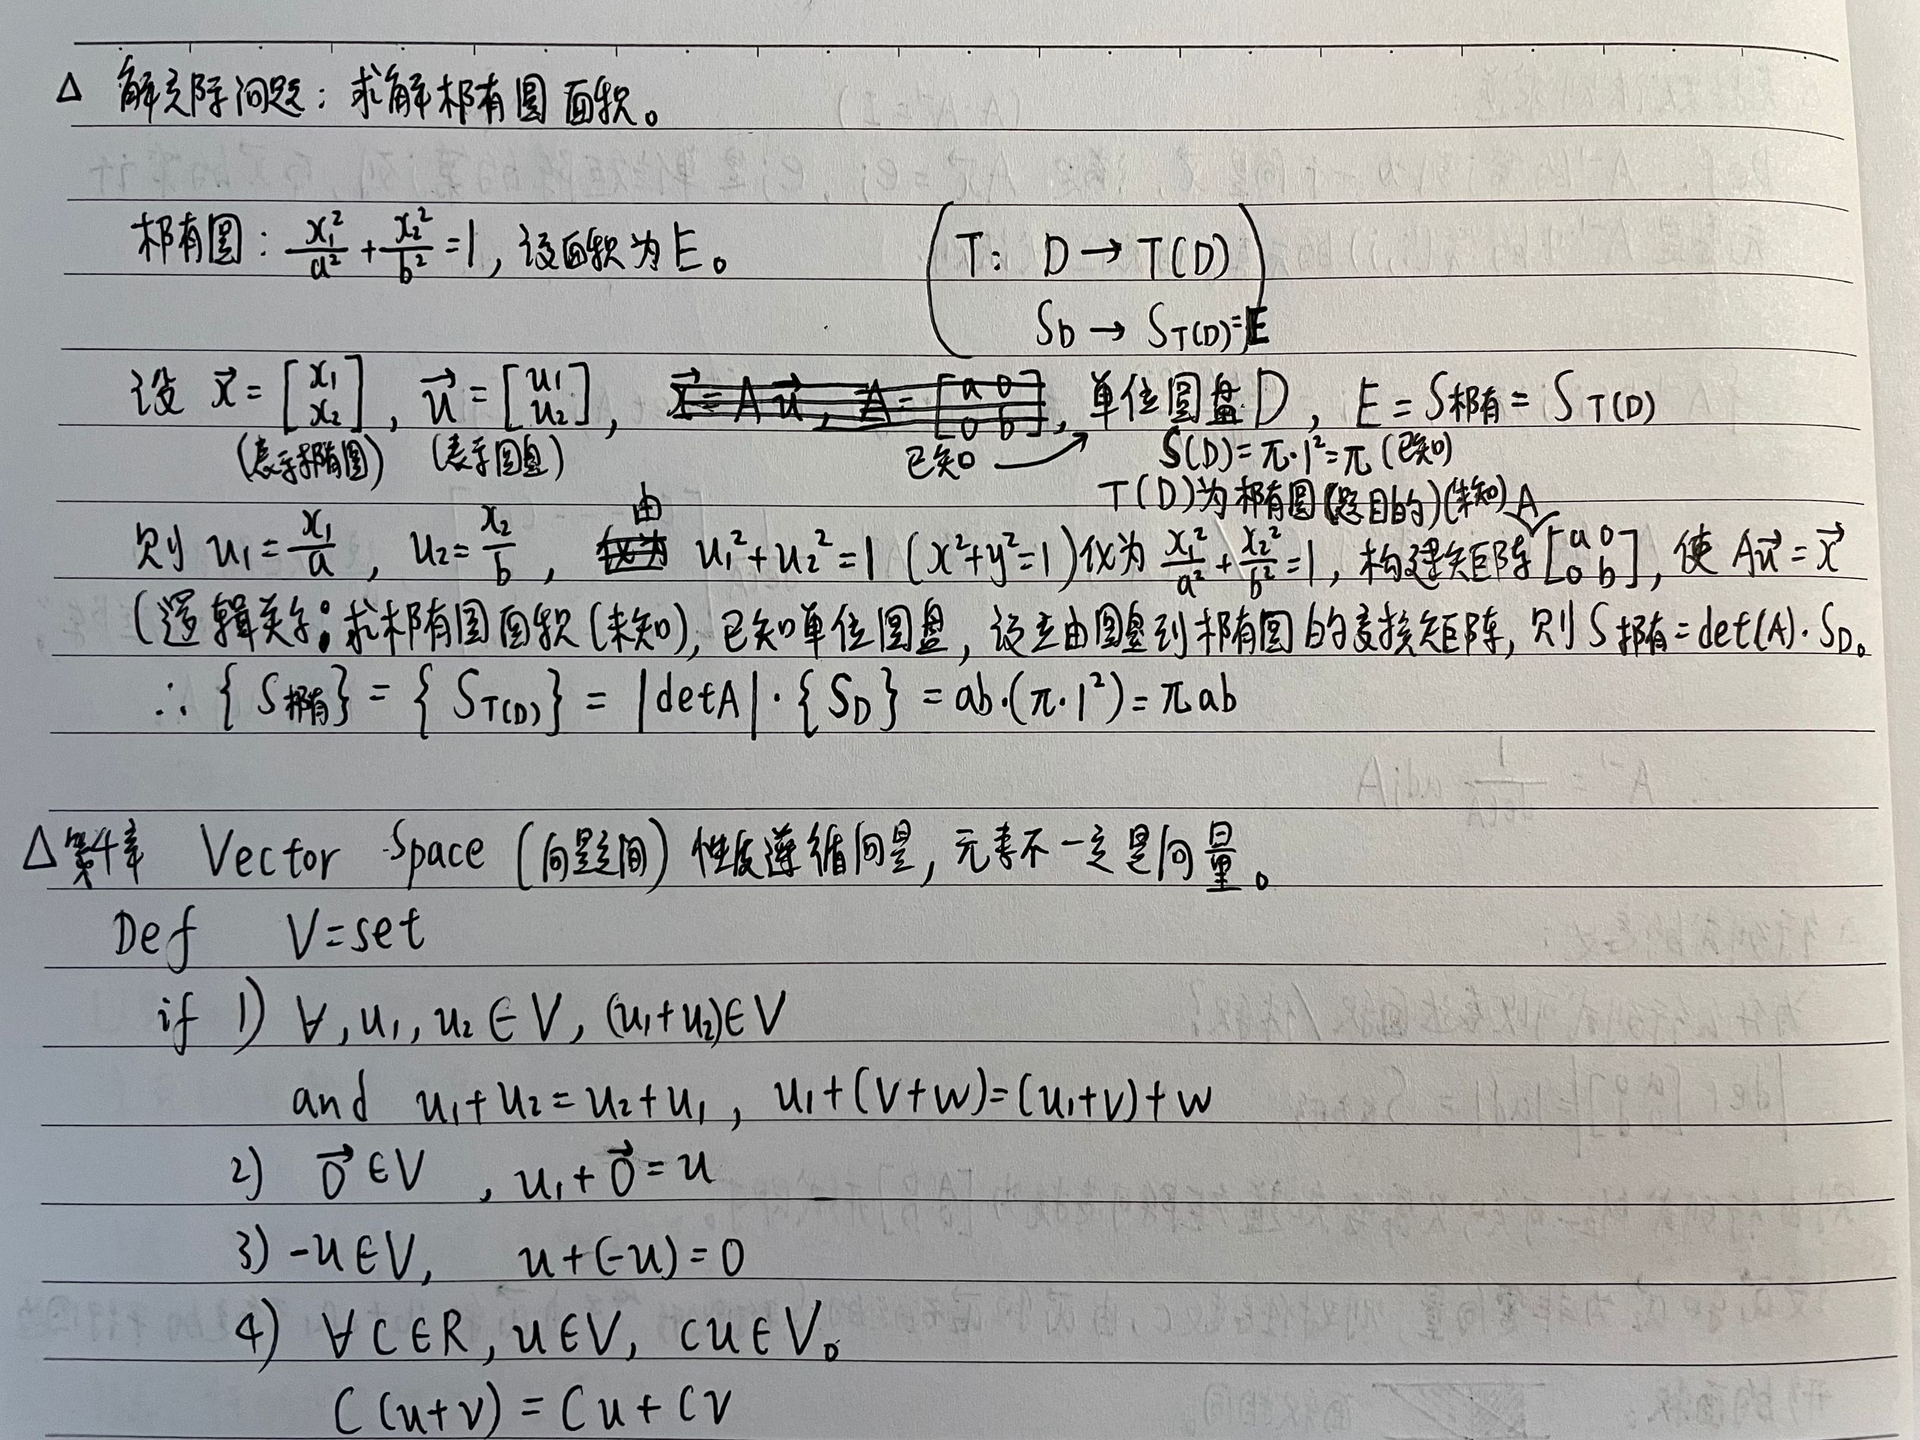 △ 解实际问题：求解椭圆面积。
椭圆：x₁²/a² + x₂²/b² = 1，设面积为E。
(T: D → T(D)
S_D → S_T(D) = E
设 x⃗ = [x₁ x₂], u⃗ = [u₁ u₂], x⃗ = Au⃗, A = [a 0 0 b], 单位圆盘D, E = S椭 = S_T(D)
(表示椭圆) (表示圆盘) 已知 → S(D) = π·1² = π (已知)
T(D)为椭圆(题目的)(未知) A
则 u₁ = x₁/a, u₂ = x₂/b, 由 u₁² + u₂² = 1 (x² + y² = 1) 化为 x₁²/a² + x₂²/b² = 1, 构建矩阵 [a 0 0 b], 使 Au⃗ = x⃗
(逻辑关系：求椭圆面积(未知), 已知单位圆盘, 设立由圆盘到椭圆的变换矩阵, 则 S椭 = det(A)·S_D。
∴ {S椭} = {S_T(D)} = |detA|·{S_D} = ab·(π·1²) = πab
△第4章 Vector Space (向量空间) 性质遵循向量, 元素不一定是向量。
Def V = set
if 1) ∀, u₁, u₂ ∈ V, (u₁+u₂) ∈ V
and u₁+u₂ = u₂+u₁, u₁+(v+w) = (u₁+v)+w
2) 0⃗ ∈ V , u₁+0⃗ = u
3) -u ∈ V, u+(-u) = 0
4) ∀ C ∈ R, u ∈ V, cu ∈ V。
C(u+v) = Cu + CV